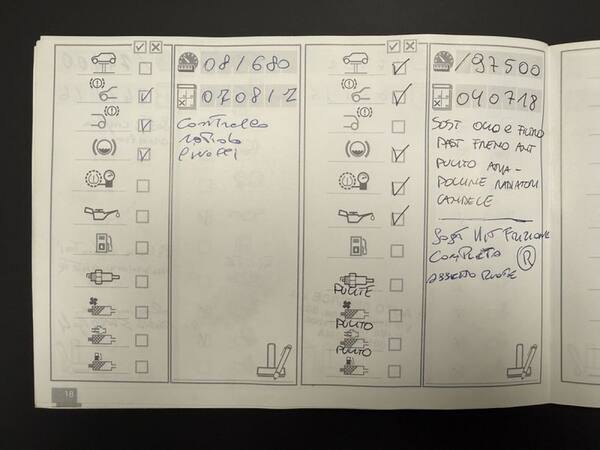 081680
070812
Controllo
PULITE
PULITO
PULITO
197500
040718
SOST OLIO E FILTRO
PAST FRENO ANT
PULITO ARIA -
POLLINE RADIATORI
CANDELE
SOST KIT FRIZIONE
COMPLETO R
ASSETTO RUOTE
18